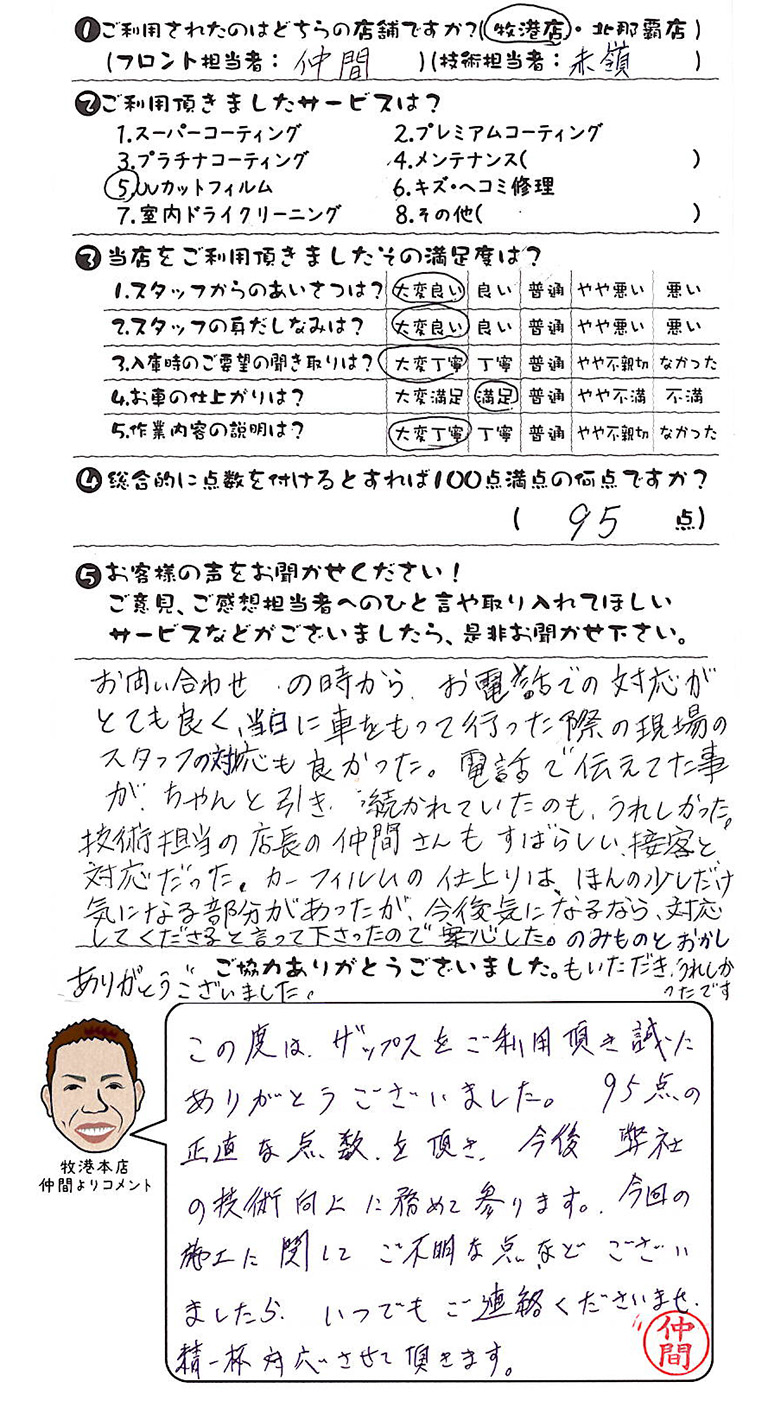 ❶ご利用されたのはどちらの店舗ですか?(牧港店・北那覇店)
(フロント担当者: 仲間 )(技術担当者: 赤嶺 )
❷ご利用頂きましたサービスは?
1.スーパーコーティング 2.プレミアムコーティング
3.プラチナコーティング 4.メンテナンス( )
5.UVカットフィルム 6.キズ・ヘコミ修理
7.室内ドライクリーニング 8.その他( )
❸当店をご利用頂きましたその満足度は?
1.スタッフからのあいさつは? 大変良い 良い 普通 やや悪い 悪い
2.スタッフの身だしなみは? 大変良い 良い 普通 やや悪い 悪い
3.入庫時のご要望の聞き取りは? 大変丁寧 丁寧 普通 やや不親切 なかった
4.お車の仕上がりは? 大変満足 満足 普通 やや不満 不満
5.作業内容の説明は? 大変丁寧 丁寧 普通 やや不親切 なかった
❹総合的に点数を付けるとすれば100点満点の何点ですか?
( 95 点)
❺お客様の声をお聞かせください!
ご意見、ご感想担当者へのひと言や取り入れてほしい
サービスなどがございましたら、是非お聞かせ下さい。
お問い合わせ の時から、お電話での対応が
とても良く、当日に車をもって行った際の現場の
スタッフの対応も良かった。電話で伝えてた事
が、ちゃんと引き 続かれていたのも、うれしかった。
技術担当の店長の仲間さんもすばらしい、接客と
対応だった。カーフィルムの仕上りは、ほんの少しだけ
気になる部分があったが、今後気になるなら、対応
してくださると言って下さったので安心した。のみものとおかし
もいただき、うれしか
ったです
ありがとうございました。
ご協力ありがとうございました。
この度は、ザップスをご利用頂き誠に
ありがとうございました。 95点の
正直な点数を頂き、今後 弊社
の技術向上に務めて参ります。今回の
施工に関して ご不明な点などござい
ましたら、いつでもご連絡くださいませ、
精一杯対応させて頂きます。
仲間
牧港本店
仲間よりコメント